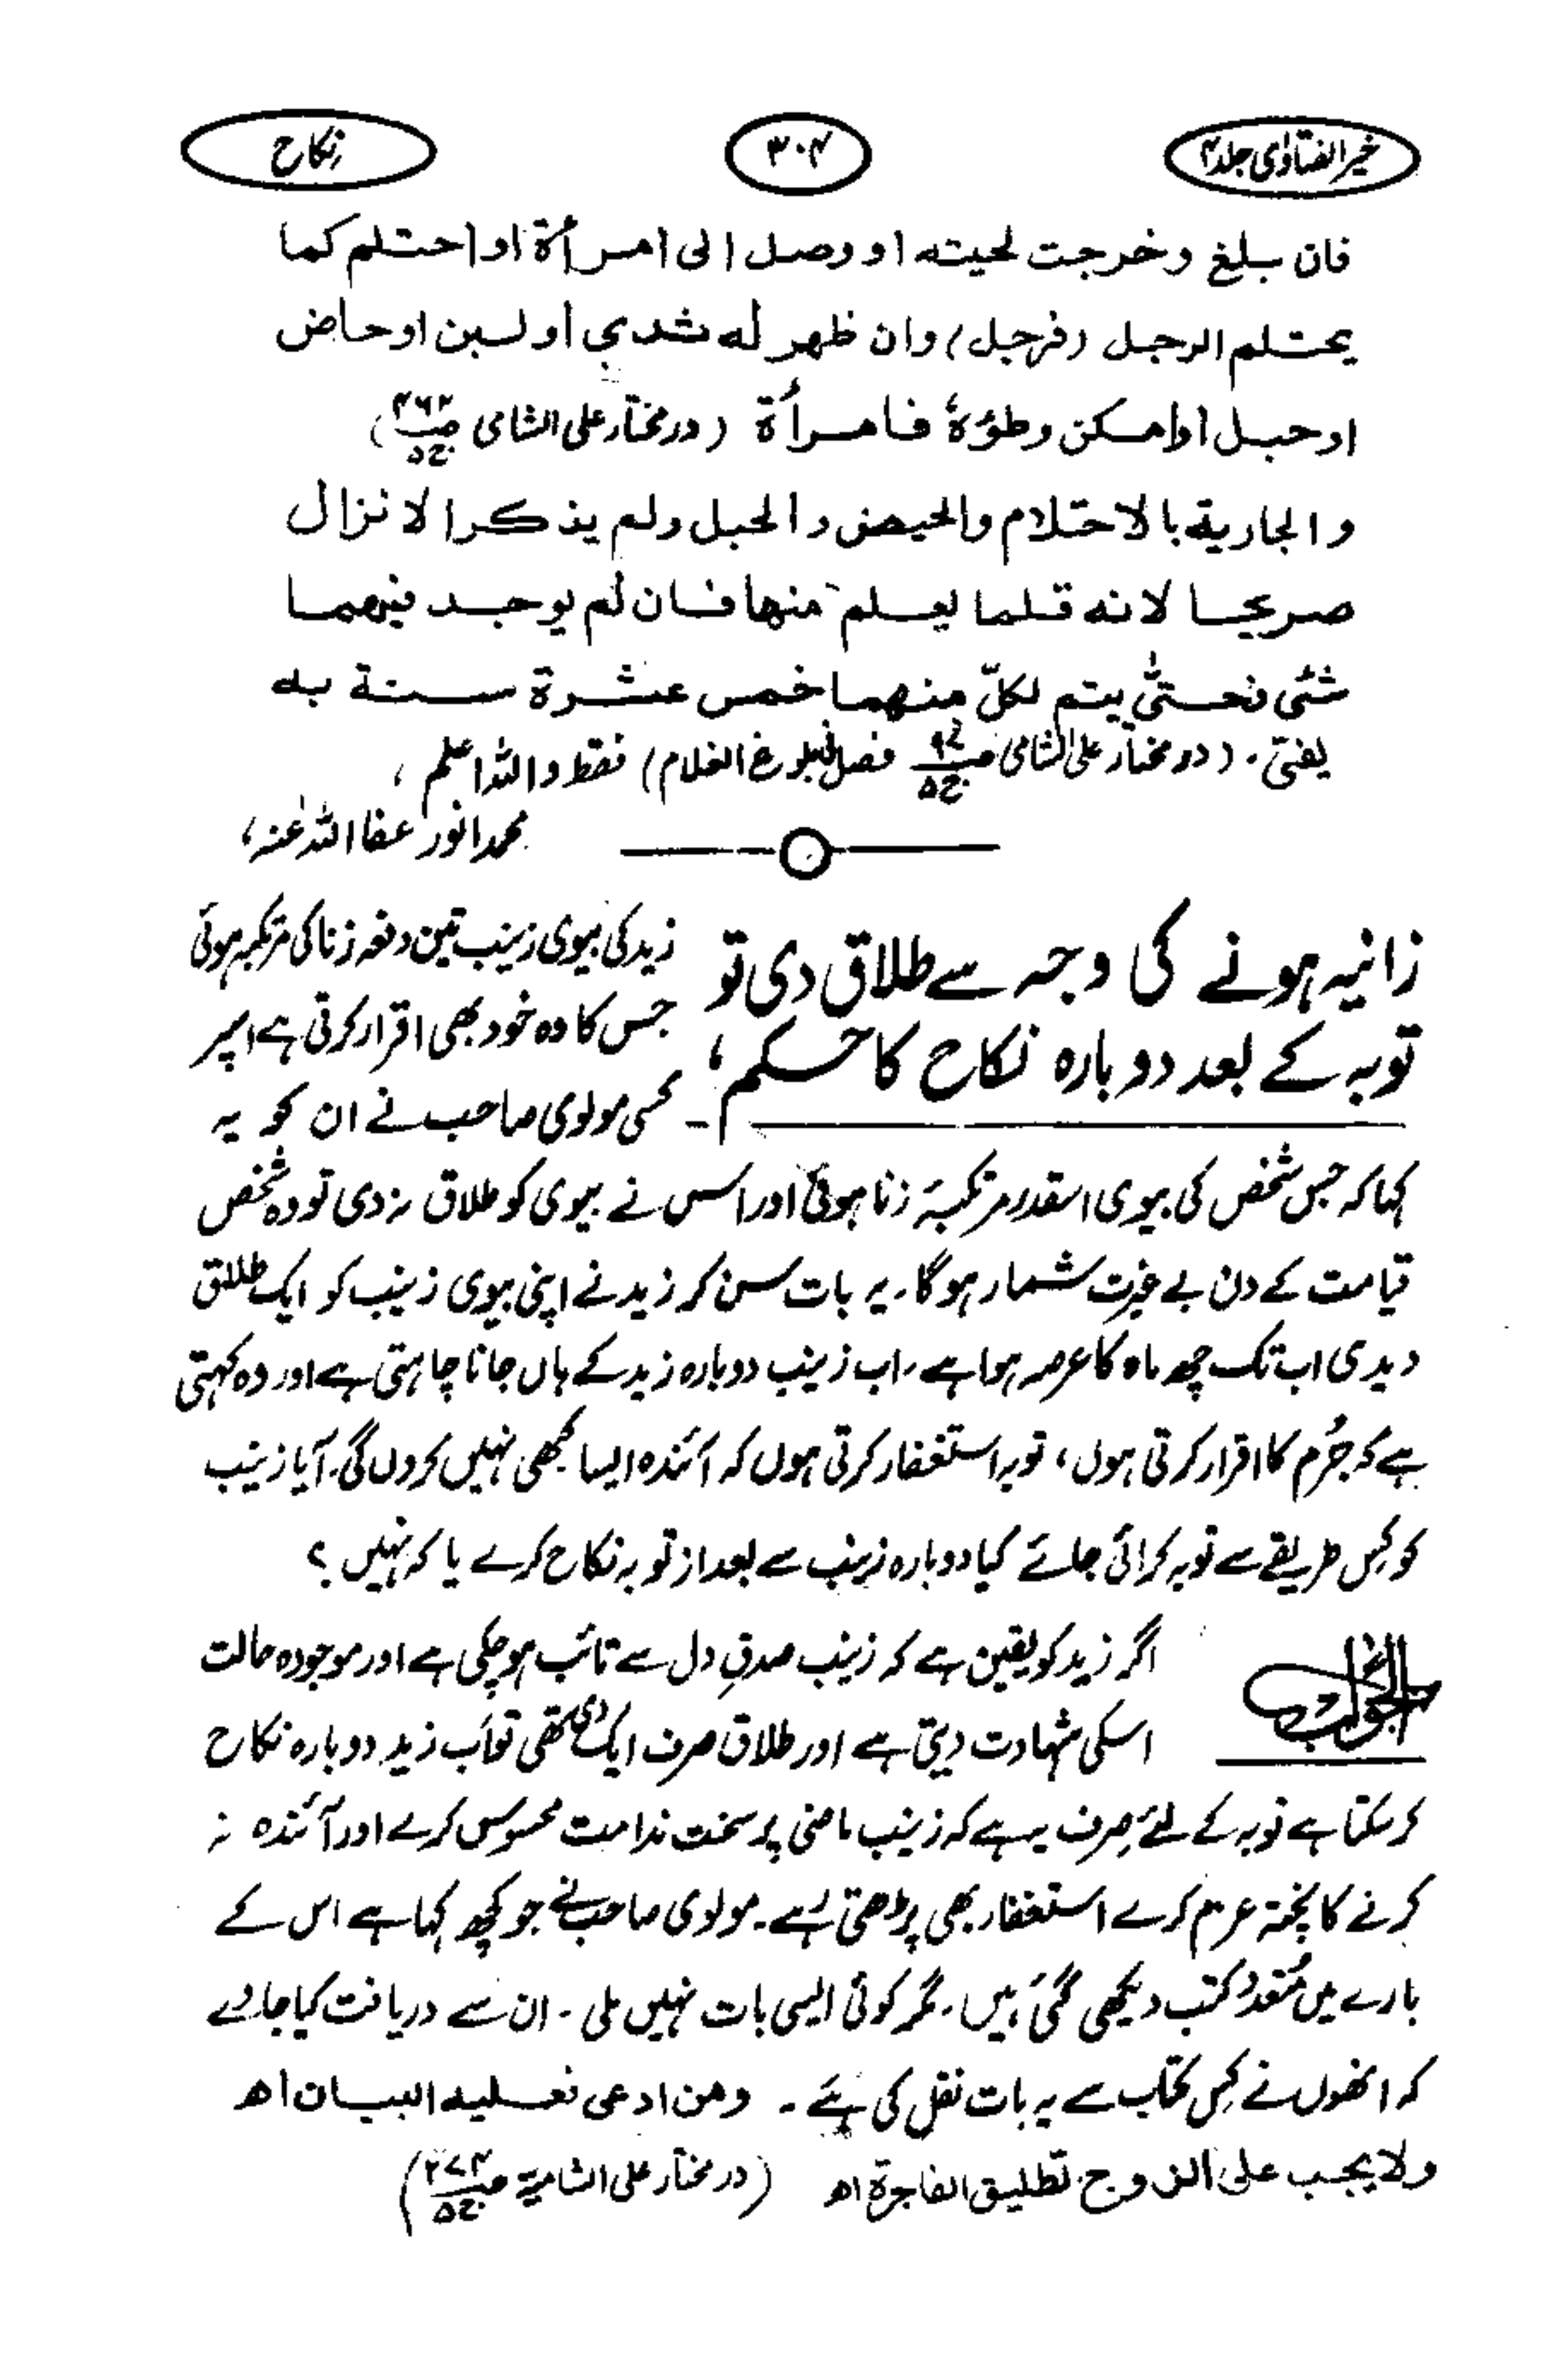 خیر الفتاوٰی جلد ۴
۳۰۴
نکاح
فان بلغ وخرجت لحیته او وصل الی امرأة او احتلم کما
یحتلم الرجل (فرجل) وان ظهر له ثدی او لبن او حاض
او حبل او امکن وطؤه فامرأة (در مختار علی الشامی ص۴۶۴ ج۵)
والجاریة بالاحتلام والحیض والحبل ولم یذکر الانزال
صریحا لانه قلما یعلم منها فان لم یوجد فیهما
شئی فحتیٰ یتم لکلّ منهما خمس عشرة سنة به
یفتی۔ (در مختار علی الشامی ص۹۷ ج۵ فصل بلوغ الغلام) فقط واللہ اعلم،
محمد انور عفا اللہ عنہ،
زانیہ ہونے کی وجہ سے طلاق دی تو
توبہ کے بعد دوبارہ نکاح کا حکم،
زید کی بیوی زینب تین دفعہ زنا کی مرتکبہ ہوئی
جس کا وہ خود بھی اقرار کرتی ہے اسپر
۔ کسی مولوی صاحب نے ان کو یہ
کہا کہ جس شخص کی بیوی اسقدر مرتکبۂ زنا ہوئی اور اس نے بیوی کو طلاق نہ دی تو وہ شخص
قیامت کے دن بے غیرت شمار ہوگا۔ یہ بات سن کر زید نے اپنی بیوی زینب کو ایک طلاق
دیدی اب تک چھ ماہ کا عرصہ ہوا ہے، اب زینب دوبارہ زید کے ہاں جانا چاہتی ہے اور وہ کہتی
ہے کہ جُرم کا اقرار کرتی ہوں، توبہ استغفار کرتی ہوں کہ آئندہ ایسا کبھی نہیں کروں گی۔ آیا زینب
کو کِس طریقے سے توبہ کرائی جائے کیا دوبارہ زینب سے بعد از توبہ نکاح کرے یا کہ نہیں؟
الجواب
اگر زید کو یقین ہے کہ زینب صدقِ دل سے تائب ہو چکی ہے اور موجودہ حالت
اسکی شہادت دیتی ہے اور طلاق صرف ایک دی تھی تو اَب زید دوبارہ نکاح
کر سکتا ہے توبہ کے لئے صِرف یہ ہے کہ زینب ماضی پر سخت ندامت محسوس کرے اور آئندہ نہ
کرنے کا پختہ عزم کرے استغفار بھی پڑھتی رہے۔ مولوی صاحب نے جو کچھ کہا ہے اس کے
بارے میں متعدد کتب دیکھی گئی ہیں۔ مگر کوئی ایسی بات نہیں ملی۔ ان سے دریافت کیا جاوے
کہ انھوں نے کِس کتاب سے یہ بات نقل کی ہے۔ ومن ادعی فعلیه البیان اھ
ولا یجب علی الزوج تطلیق الفاجرة اھ (در مختار علی الشامیة ص۲۷۴ ج۵)